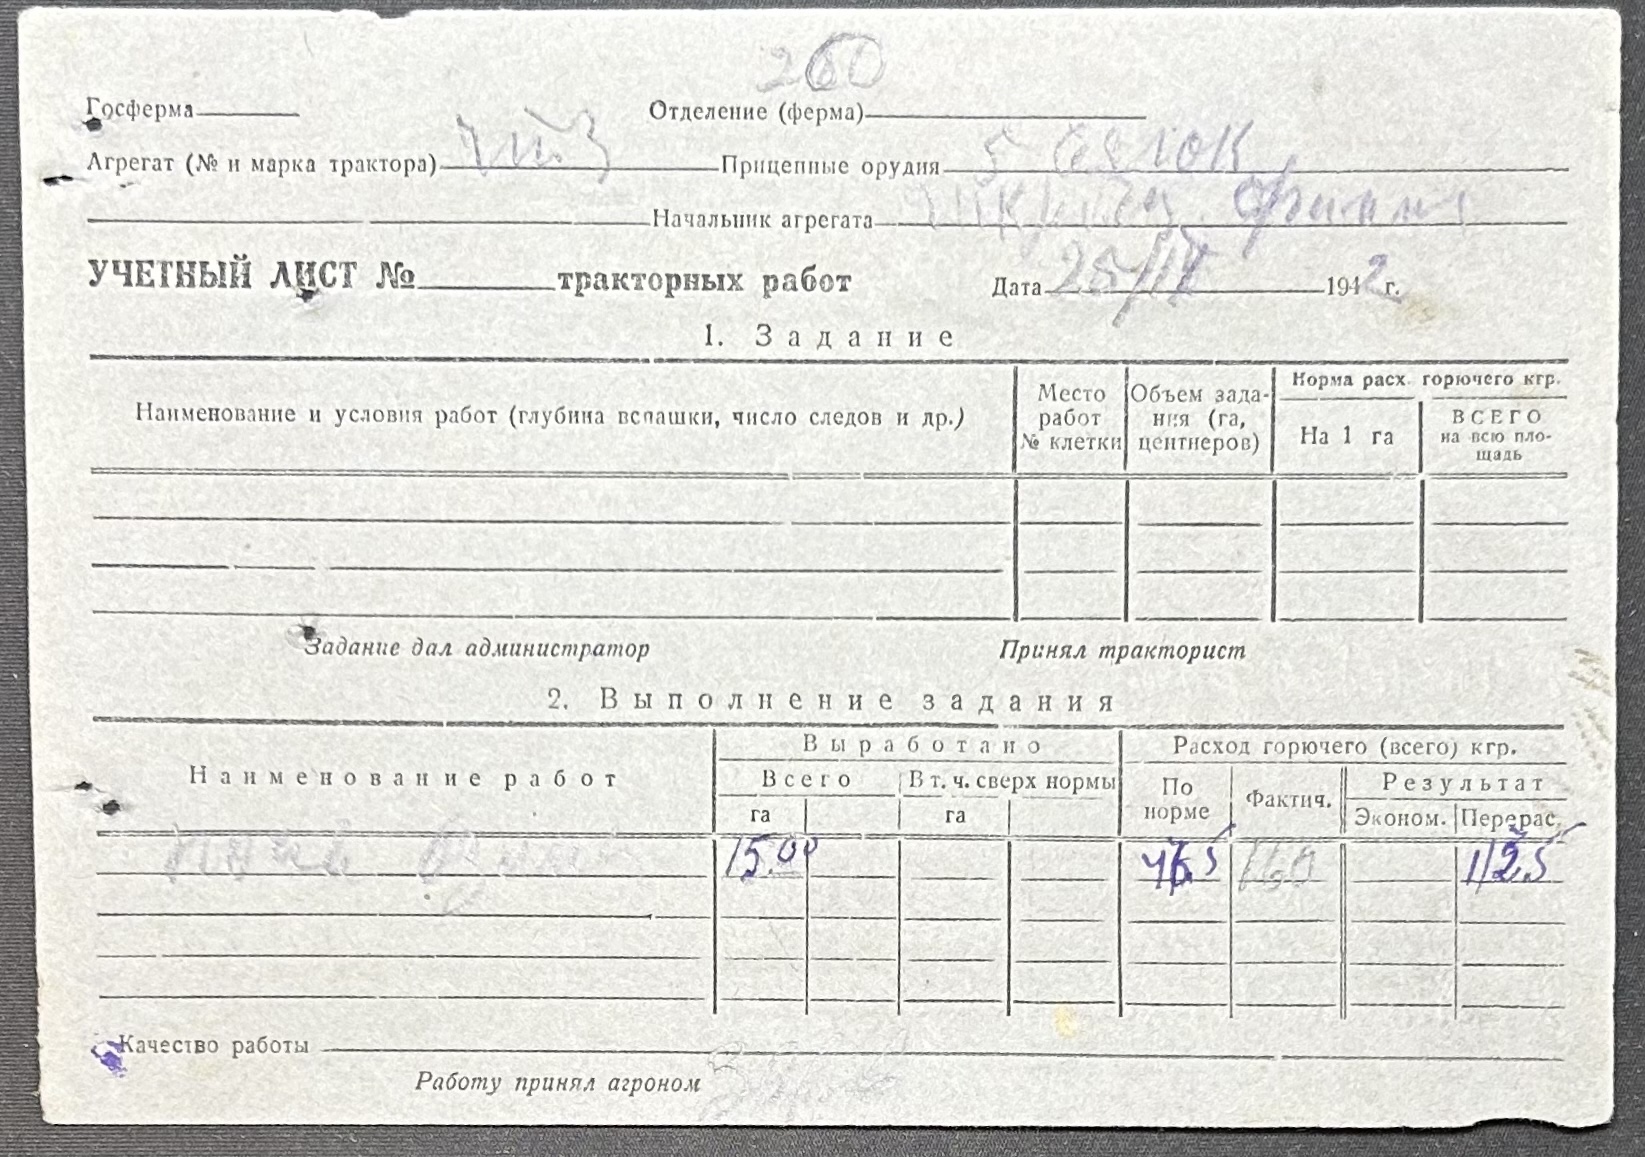 260
Госферма Отделение (ферма)
Агрегат (№ и марка трактора) ЧТЗ Прицепные орудия 5 сеялок
Начальник агрегата
УЧЕТНЫЙ ЛИСТ № тракторных работ Дата 25/IV 1942 г.
1. Задание
Наименование и условия работ (глубина вспашки, число следов и др.) Место работ № клетки Объем задания (га, центнеров) Норма расх. горючего кгр.
На 1 га ВСЕГО на всю площадь
Задание дал администратор Принял тракторист
2. Выполнение задания
Наименование работ Выработано Расход горючего (всего) кгр.
Всего В т. ч. сверх нормы По норме Фактич. Результат
га га Эконом. Перерас.
15.00 160 112.5
Качество работы
Работу принял агроном